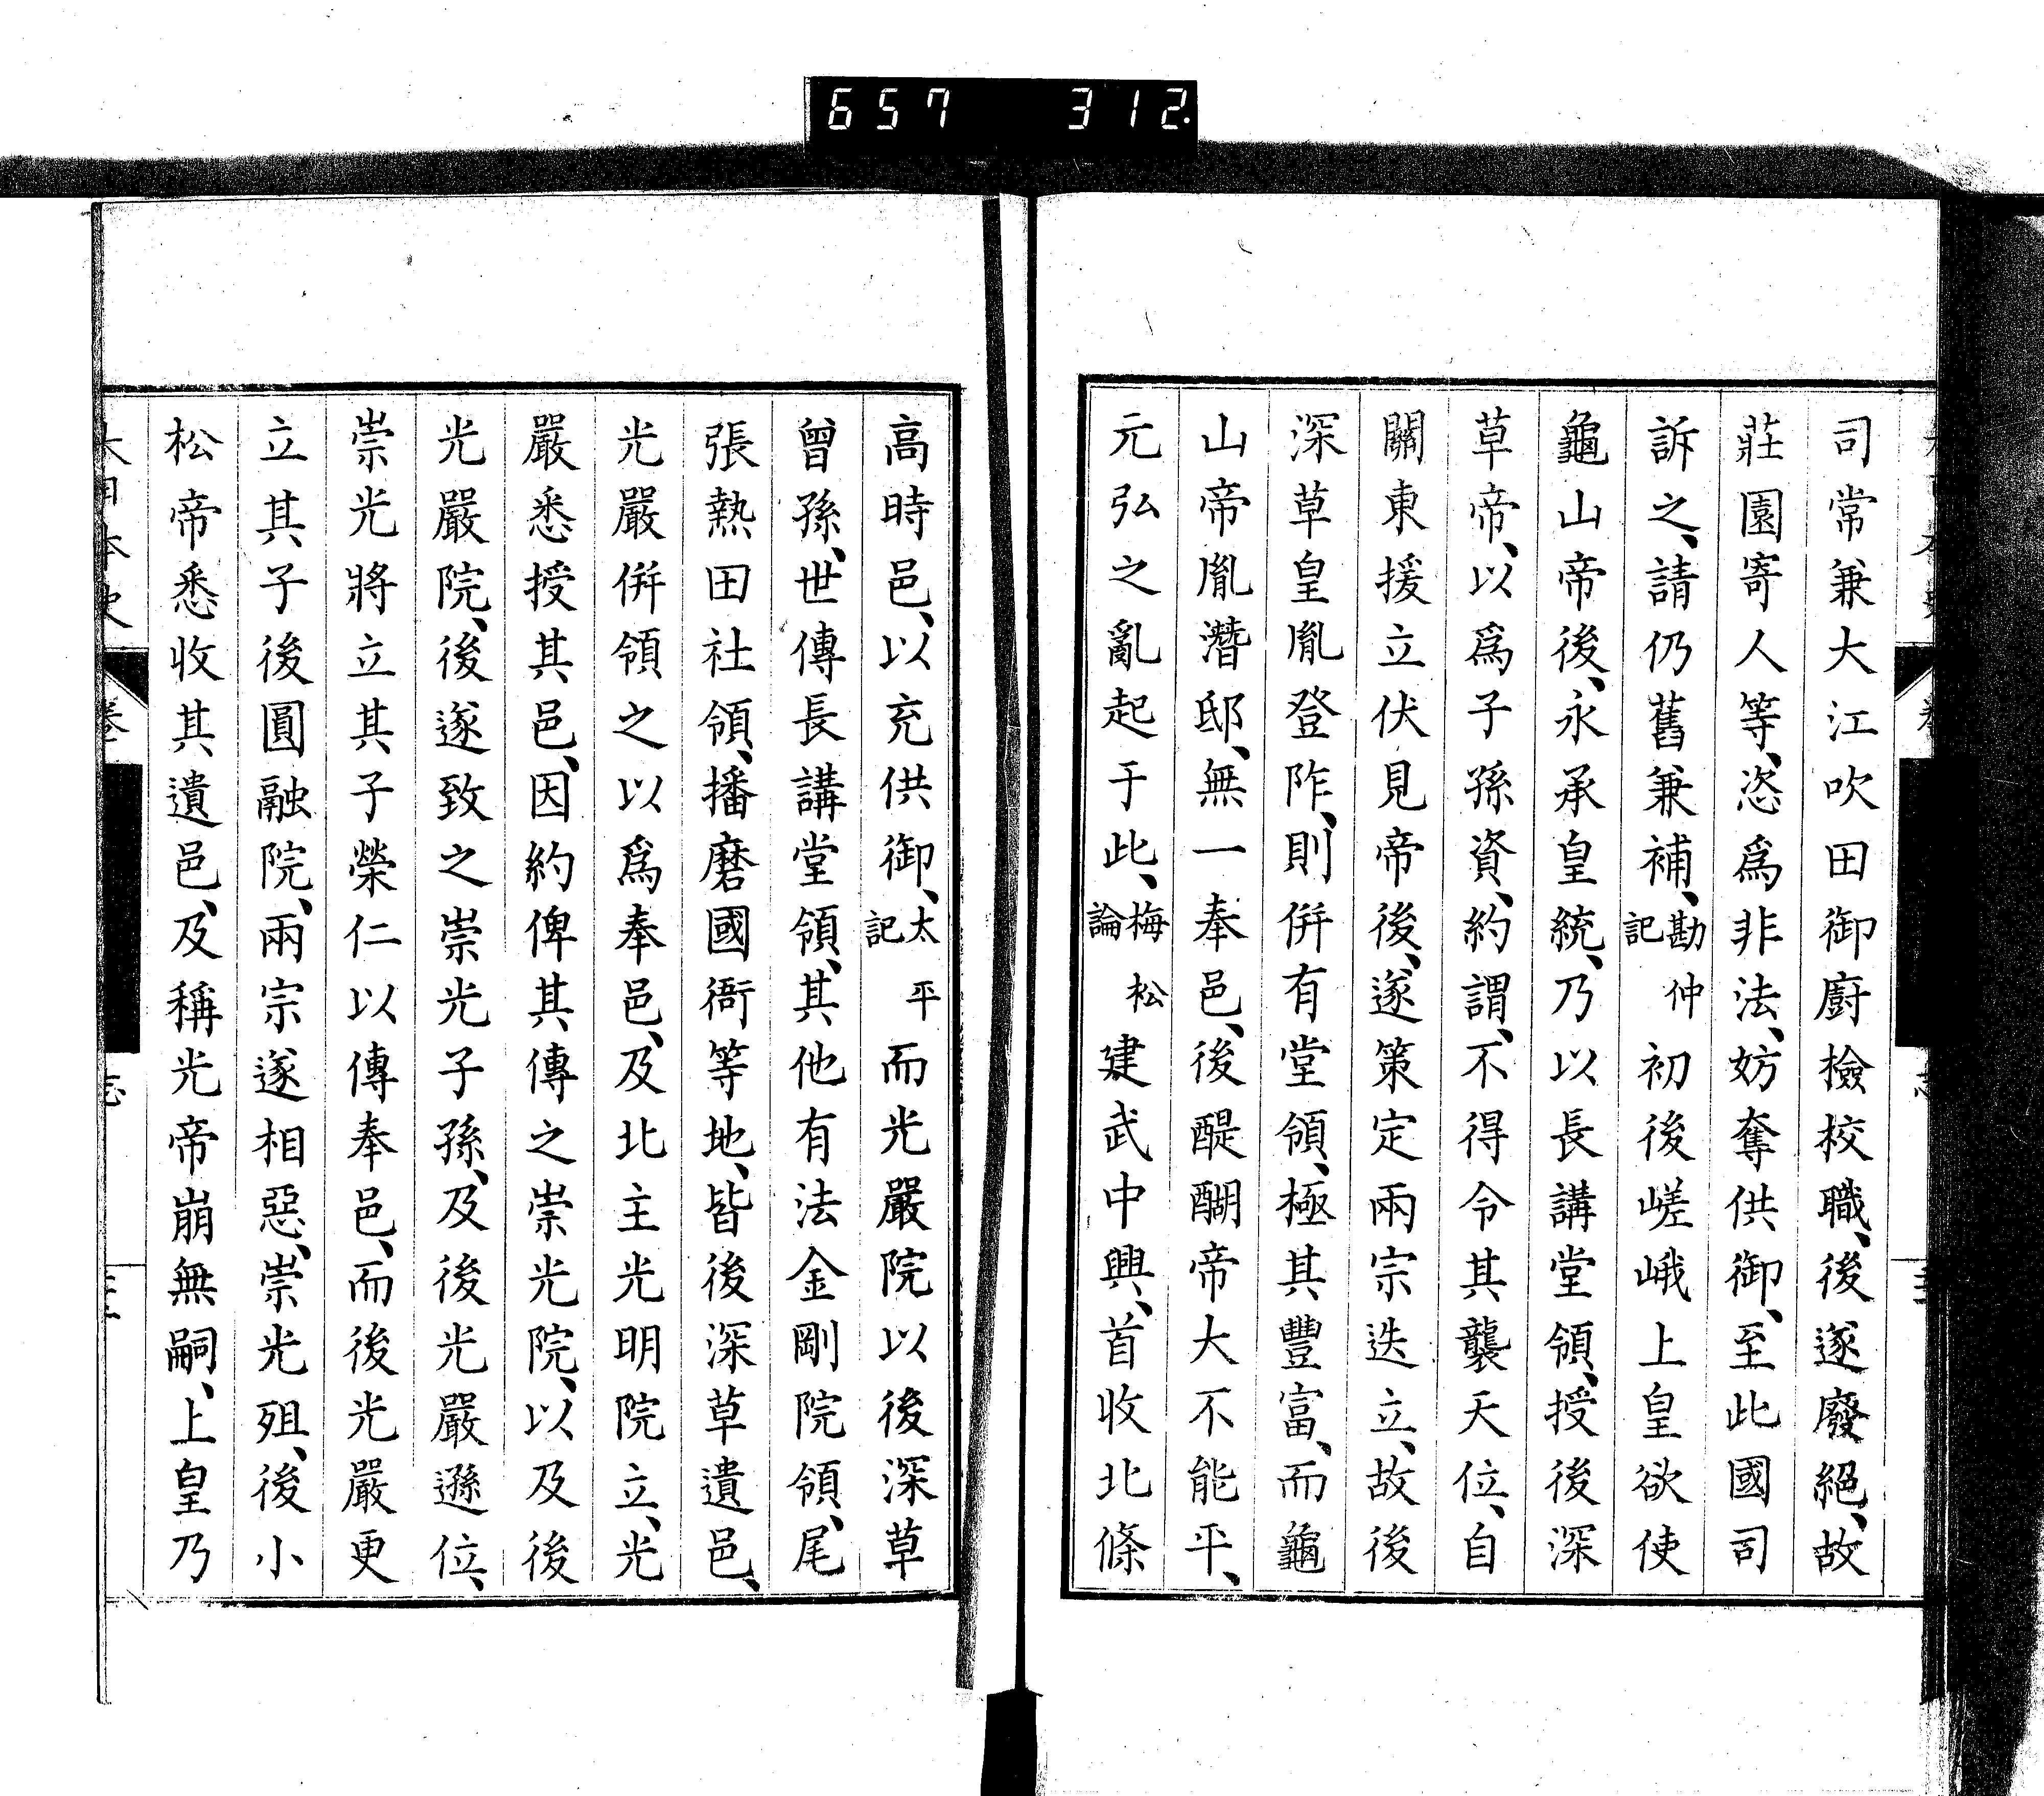 657 312.
司常兼大江吹田御廚檢校職、後遂廢絕、故
莊園寄人等、恣爲非法、妨奪供御、至此國司
訴之、請仍舊兼補、勘仲記初後嵯峨上皇欲使
龜山帝後、永承皇統、乃以長講堂領、授後深
草帝、以爲子孫資、約謂、不得令其襲天位、自
關東援立伏見帝後、遂策定兩宗迭立、故後
深草皇胤登阼、則併有堂領、極其豐富、而龜
山帝胤潛邸、無一奉邑、後醍醐帝大不能平、
元弘之亂起于此、梅松論建武中興、首收北條
高時邑、以充供御、太平記而光嚴院以後深草
曾孫、世傳長講堂領、其他有法金剛院領、尾
張熱田社領、播磨國衙等地、皆後深草遺邑、
光嚴併領之以爲奉邑、及北主光明院立、光
嚴悉授其邑、因約俾其傳之崇光院、以及後
光嚴院、後遂致之崇光子孫、及後光嚴遜位、
崇光將立其子榮仁以傳奉邑、而後光嚴更
立其子後圓融院、兩宗遂相惡、崇光殂、後小
松帝悉收其遺邑、及稱光帝崩無嗣、上皇乃
大日本史